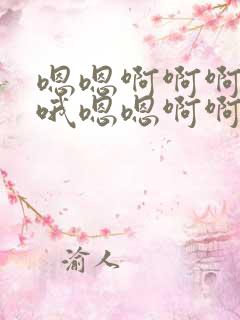 嗯嗯啊啊啊
哦嗯嗯啊啊
渝人